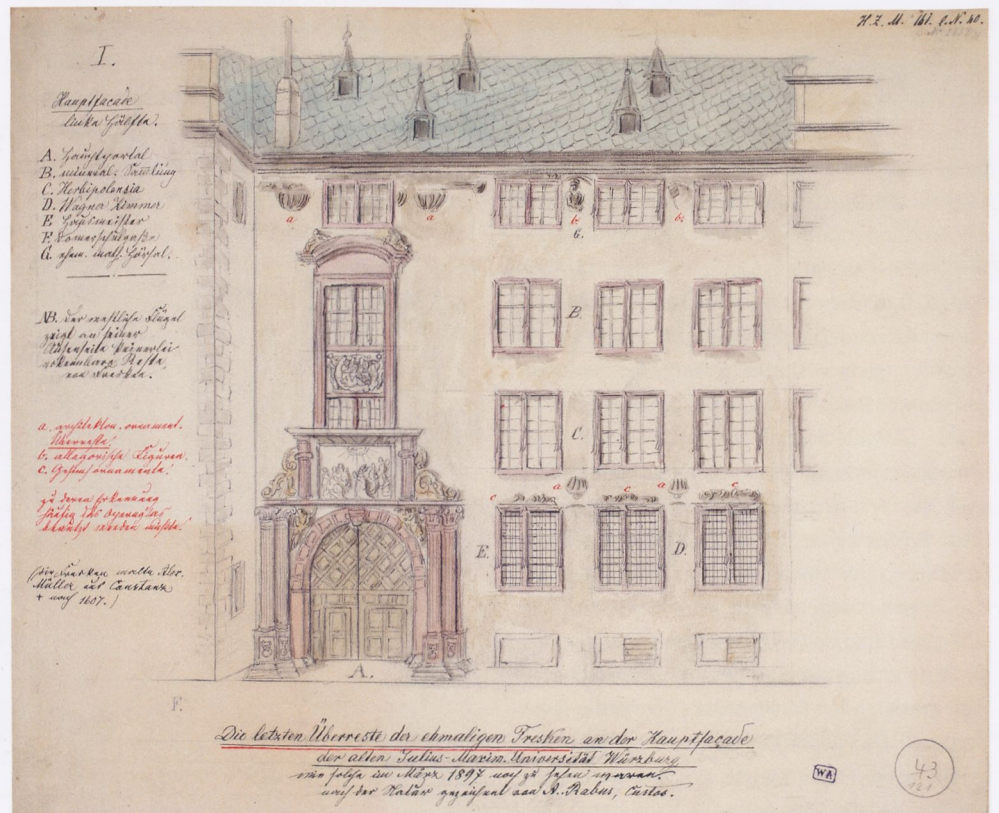 H.Z. M. III. C. N. 40.
I.
Hauptfacade
linke Hälfte.
A. Hauptportal
B. mineral. Samlung
C. Herbipolensia
D. Wagner Zimmer
E Hausmeister
F. Domerschulgaße
G. ehem. math. Hörsal.
NB. der westliche Flügel
zeigt an seiner
Außenseite keinerlei
erkennbare Reste
von Fresken.
a. architekton. ornament.
Überreste.
b. allegorische Figuren.
c. Gesimsornamente.
zu deren Erkennung
häufig das Opernglas
benützt werden mußte.
die Fresken malte Alex.
Müller aus Constanz
+ nach 1607.
a
a
b
b.
G.
B.
C.
c
a
c
a
c
E.
D.
A.
F.
Die letzten Überreste der ehmaligen Fresken an der Hauptfaçade
der alten Julius-Maxim. Universität Würzburg
wie solche im März 1897 noch zu sehen waren.
nach der Natur gezeichnet von A. Rabus, Custos.
WA
43
121